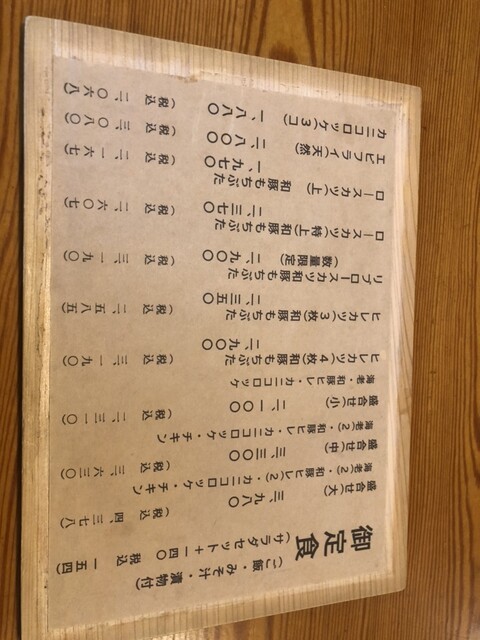 御定食
(ご飯・みそ汁・漬物付)
(サラダセット+一四〇 税込 一五四)
盛合せ(大) 三、九八〇 (税込 四、三七八)
海老(2)・和豚ヒレ(2)・カニコロッケ・チキン
盛合せ(中) 三、三〇〇 (税込 三、六三〇)
海老(2)・和豚ヒレ・カニコロッケ・チキン
盛合せ(小) 二、一〇〇 (税込 二、三一〇)
海老・和豚ヒレ・カニコロッケ
ヒレカツ(4枚)和豚もちぶた
二、九〇〇 (税込 三、一九〇)
ヒレカツ(3枚)和豚もちぶた
二、三五〇 (税込 二、五八五)
リブロースカツ和豚もちぶた
(数量限定) 二、九〇〇 (税込 三、一九〇)
ロースカツ(特上)和豚もちぶた
二、三七〇 (税込 二、六〇七)
ロースカツ(上) 和豚もちぶた
一、九七〇 (税込 二、一六七)
エビフライ(天然) 二、八〇〇 (税込 三、〇八〇)
カニコロッケ(3コ) 一、八八〇 (税込 二、〇六八)